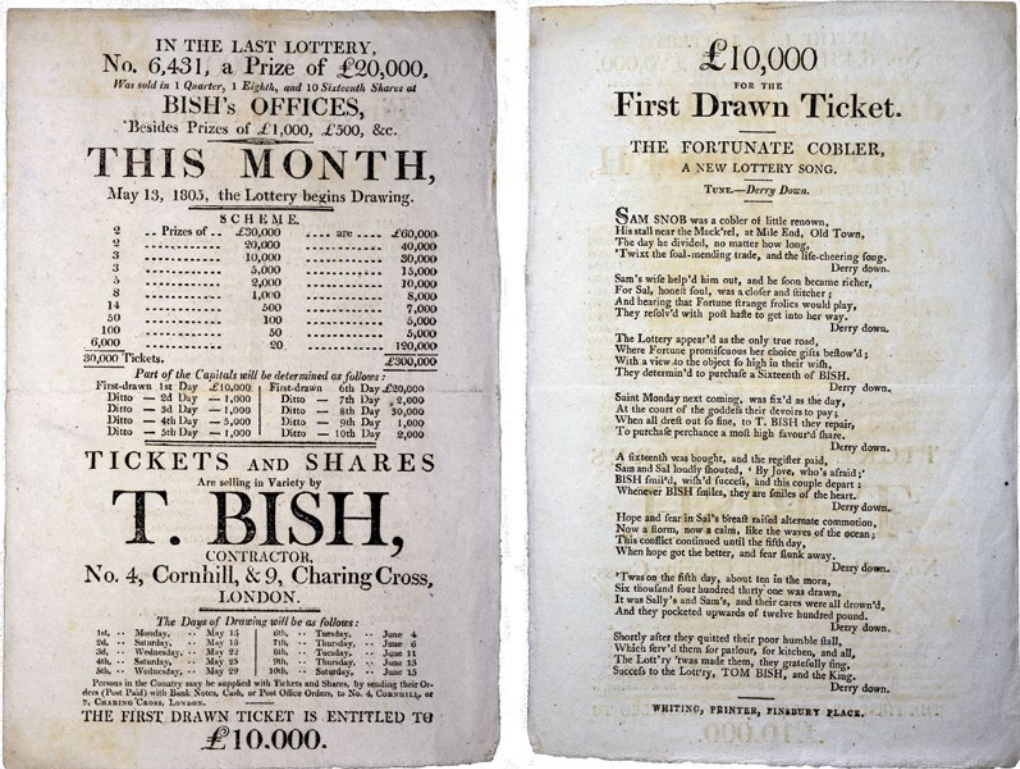 IN THE LAST LOTTERY,
No. 6,431, a Prize of £20,000,
Was sold in 1 Quarter, 1 Eighth, and 10 Sixteenth Shares at
BISH's OFFICES,
Besides Prizes of £1,000, £500, &c.
THIS MONTH,
May 13, 1805, the Lottery begins Drawing.
SCHEME.
2 .. Prizes of .. £30,000 .... are .... £60,000
2 ............ 20,000 ............ 40,000
3 ............ 10,000 ............ 30,000
3 ............ 5,000 ............ 15,000
5 ............ 2,000 ............ 10,000
8 ............ 1,000 ............ 8,000
14 ............ 500 ............ 7,000
50 ............ 100 ............ 5,000
100 ............ 50 ............ 5,000
6,000 ............ 20 ............ 120,000
30,000 Tickets. £300,000
Part of the Capitals will be determined as follows:
First-drawn 1st Day £10,000 First-drawn 6th Day £20,000
Ditto — 2d Day — 1,000 Ditto — 7th Day 2,000
Ditto — 3d Day — 1,000 Ditto — 8th Day 30,000
Ditto — 4th Day — 5,000 Ditto — 9th Day 1,000
Ditto — 5th Day — 1,000 Ditto — 10th Day 2,000
TICKETS AND SHARES
Are selling in Variety by
T. BISH,
CONTRACTOR,
No. 4, Cornhill, & 9, Charing Cross,
LONDON.
The Days of Drawing will be as follows:
1st, .. Monday, .. May 13 6th, .. Tuesday, .. June 4
2d, .. Saturday, .. May 18 7th, .. Thursday, .. June 6
3d, .. Wednesday, .. May 22 8th, .. Tuesday, .. June 11
4th, .. Saturday, .. May 25 9th, .. Thursday, .. June 13
5th, .. Wednesday, .. May 29 10th, .. Saturday, .. June 15
Persons in the Country may be supplied with Tickets and Shares, by sending their Or-
ders (Post Paid) with Bank Notes, Cash, or Post Office Orders, to No. 4, CORNHILL, or
9, CHARING CROSS, LONDON.
THE FIRST DRAWN TICKET IS ENTITLED TO
£10,000.
£10,000
FOR THE
First Drawn Ticket.
THE FORTUNATE COBLER,
A NEW LOTTERY SONG.
TUNE.—Derry Down.
SAM SNOB was a cobler of little renown,
His stall near the Mack'rel, at Mile End, Old Town,
The day he divided, no matter how long,
'Twixt the soal-mending trade, and the life-cheering song.
Derry down.
Sam's wife help'd him out, and he soon became richer,
For Sal, honest soul, was a closer and stitcher;
And hearing that Fortune strange frolics would play,
They resolv'd with post haste to get into her way.
Derry down.
The Lottery appear'd as the only true road,
Where Fortune promiscuous her choice gifts bestow'd;
With a view to the object so high in their wish,
They determin'd to purchase a Sixteenth of BISH.
Derry down.
Saint Monday next coming, was fix'd as the day,
At the court of the goddess their devoirs to pay;
When all drest out so fine, to T. BISH they repair,
To purchase perchance a most high favour'd share.
Derry down.
A sixteenth was bought, and the register paid,
Sam and Sal loudly shouted, ' By Jove, who's afraid;'
BISH smil'd, wish'd success, and this couple depart;
Whenever BISH smiles, they are smiles of the heart.
Derry down.
Hope and fear in Sal's breast raised alternate commotion,
Now a storm, now a calm, like the waves of the ocean;
This conflict continued until the fifth day,
When hope got the better, and fear slunk away.
Derry down.
'Twas on the fifth day, about ten in the morn,
Six thousand four hundred thirty one was drawn,
It was Sally's and Sam's, and their cares were all drown'd,
And they pocketed upwards of twelve hundred pound.
Derry down.
Shortly after they quitted their poor humble stall,
Which serv'd them for parlour, for kitchen, and all,
The Lott'ry 'twas made them, they gratefully sing,
Success to the Lott'ry, TOM BISH, and the King.
Derry down.
WHITING, PRINTER, FINSBURY PLACE.